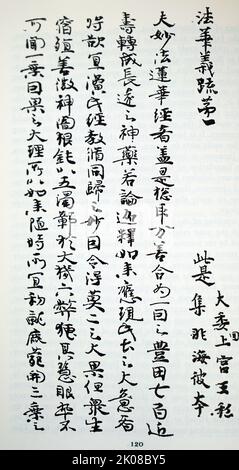 法華義疏第一
此是
大委国上宮王私
集非海彼本
夫妙法蓮華経者蓋是惣取万善合為一因之豊田七百近
寿転成長遠之神薬若論迦釈如来應現此土之大意者
将欲宜演此経教脩同帰之妙因令得莫二之大果但衆生
宿殖善微神闇根鈍以五濁鄣於大機六弊掩其慧眼卒不
可聞一乗因果之大理所以如来随時所宜初就鹿苑開三乗之
120